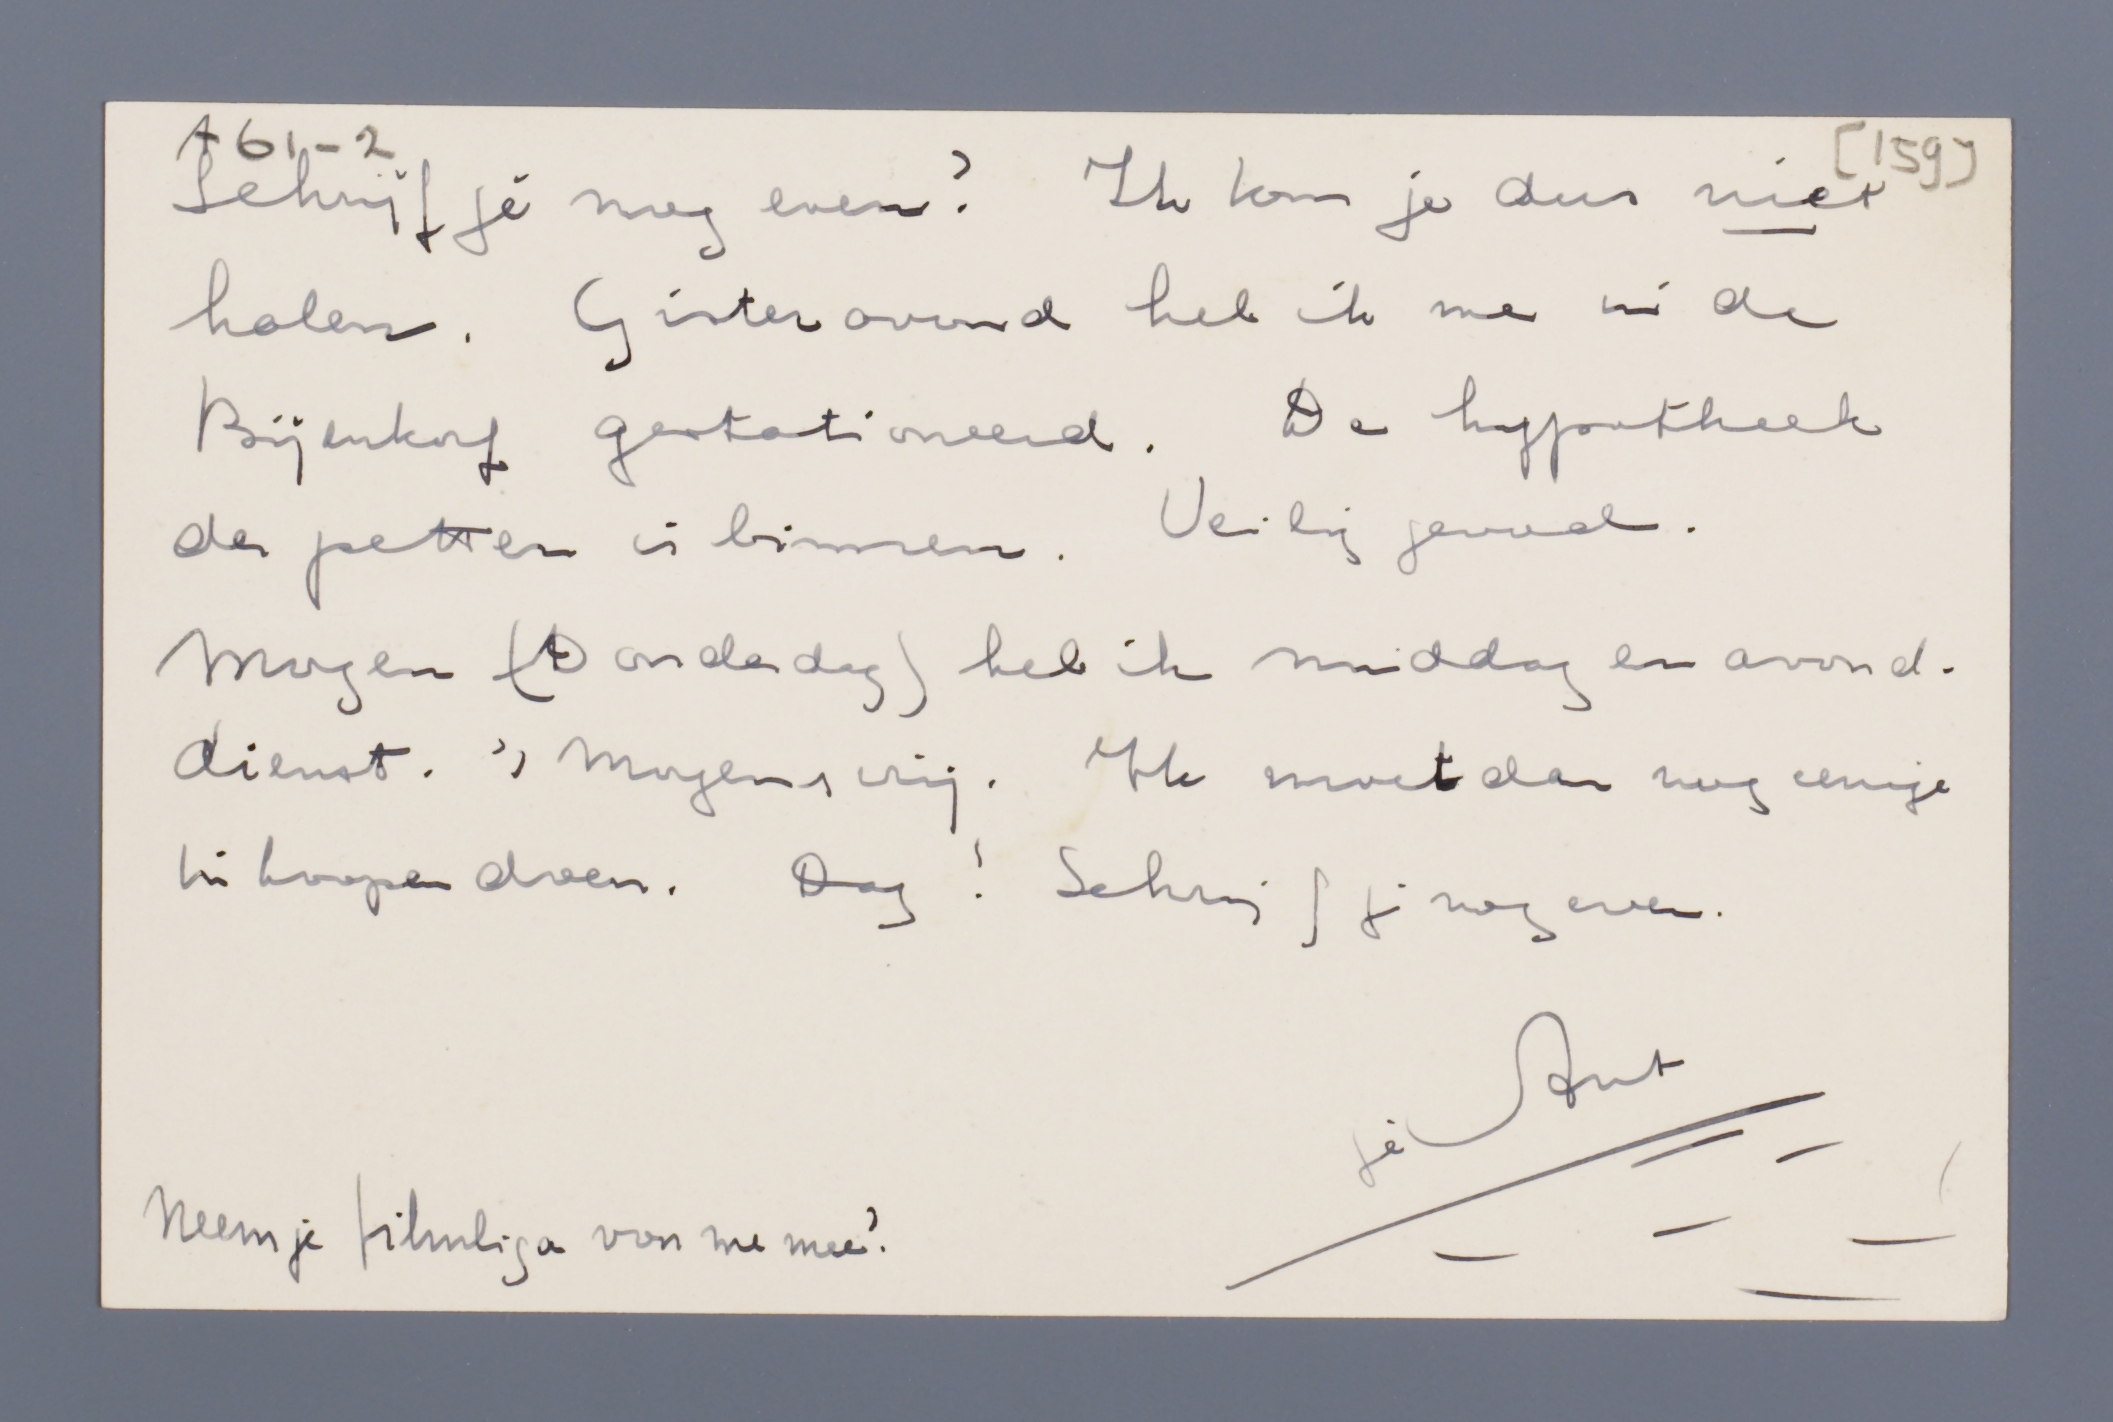 A61-2
[159]
Schrijf je nog even? Ik kom je dus niet
halen. Gisteravond heb ik me in de
Bijenkorf gestationeerd. De hypotheek
der petten is binnen. Veilig gevoel.
Morgen (Donderdag) heb ik middag en avond-
dienst. 's Morgens vrij. Ik moet dan nog eenige
inkoopen doen. Dag! Schrijf je nog even.
je Ant
Neem je filmliga van me mee?